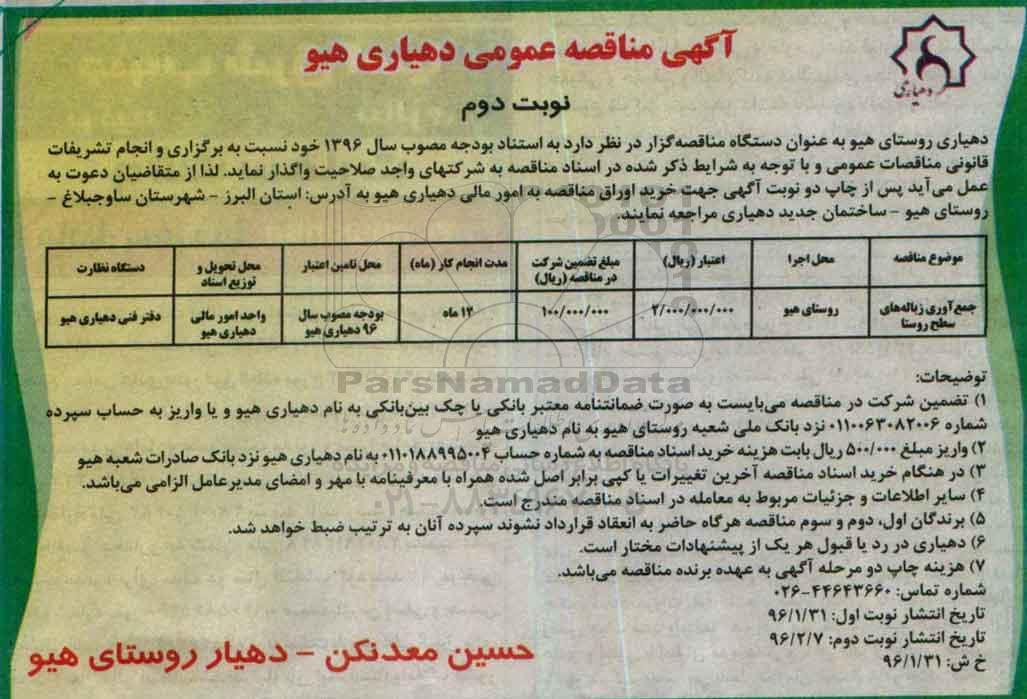 آگهی مناقصه عمومی دهیاری هیو
دهیاری
نوبت دوم
دهیاری روستای هیو به عنوان دستگاه مناقصه‌گزار در نظر دارد به استناد بودجه مصوب سال ۱۳۹۶ خود نسبت به برگزاری و انجام تشریفات
قانونی مناقصات عمومی و با توجه به شرایط ذکر شده در اسناد مناقصه به شرکتهای واجد صلاحیت واگذار نماید. لذا از متقاضیان دعوت به
عمل می‌آید پس از چاپ دو نوبت آگهی جهت خرید اوراق مناقصه به امور مالی دهیاری هیو به آدرس: استان البرز - شهرستان ساوجبلاغ -
روستای هیو - ساختمان جدید دهیاری مراجعه نمایند.
موضوع مناقصه | محل اجرا | اعتبار (ریال) | مبلغ تضمین شرکت در مناقصه (ریال) | مدت انجام کار (ماه) | محل تامین اعتبار | محل تحویل و توزیع اسناد | دستگاه نظارت
جمع‌آوری زباله‌های سطح روستا | روستای هیو | ۲/۰۰۰/۰۰۰/۰۰۰ | ۱۰۰/۰۰۰/۰۰۰ | ۱۲ ماه | بودجه مصوب سال ۹۶ دهیاری هیو | واحد امور مالی دهیاری هیو | دفتر فنی دهیاری هیو
ParsNamadData
توضیحات:
۱) تضمین شرکت در مناقصه می‌بایست به صورت ضمانتنامه معتبر بانکی یا چک بین‌بانکی به نام دهیاری هیو و یا واریز به حساب سپرده
شماره ۰۱۱۰۰۶۳۰۸۲۰۰۶ نزد بانک ملی شعبه روستای هیو به نام دهیاری هیو
۲) واریز مبلغ ۵۰۰/۰۰۰ ریال بابت هزینه خرید اسناد مناقصه به شماره حساب ۰۱۱۰۱۸۸۹۹۵۰۰۴ به نام دهیاری هیو نزد بانک صادرات شعبه هیو
۳) در هنگام خرید اسناد مناقصه آخرین تغییرات یا کپی برابر اصل شده همراه با معرفینامه با مهر و امضای مدیرعامل الزامی می‌باشد.
۴) سایر اطلاعات و جزئیات مربوط به معامله در اسناد مناقصه مندرج است.
۵) برندگان اول، دوم و سوم مناقصه هرگاه حاضر به انعقاد قرارداد نشوند سپرده آنان به ترتیب ضبط خواهد شد.
۶) دهیاری در رد یا قبول هر یک از پیشنهادات مختار است.
۷) هزینه چاپ دو مرحله آگهی به عهده برنده مناقصه می‌باشد.
شماره تماس: ۴۴۶۴۳۶۶۰-۰۲۶
تاریخ انتشار نوبت اول: ۹۶/۱/۳۱
تاریخ انتشار نوبت دوم: ۹۶/۲/۷
خ ش: ۹۶/۱/۳۱
حسین معدنکن - دهیار روستای هیو